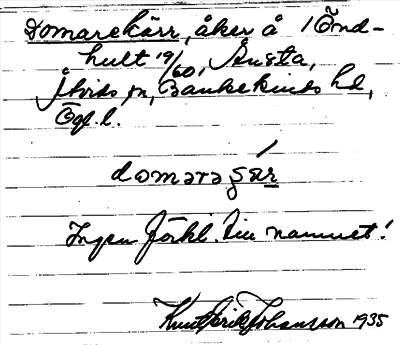 Domarekärr, åker å 1 Önd-
hult 19/60, Ånsta,
Åtvids sn, Bankekinds hd,
Ögl. l.
domarašär
Ingen förkl. till namnet!
Knut Erik Johansson 1935